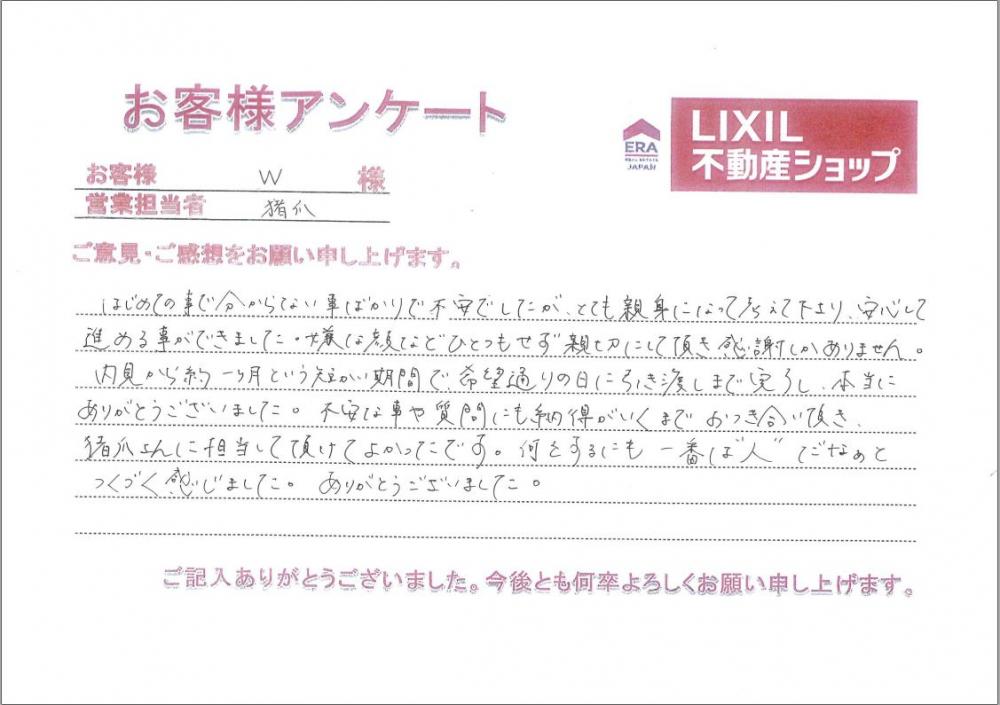 お客様アンケート
ERA
REAL ESTATE
JAPAN
LIXIL
不動産ショップ
お客様 W 様
営業担当者 猪爪
ご意見・ご感想をお願い申し上げます。
はじめての事で分からない事ばかりで不安でしたが、とても親身になって考えて下さり、安心して
進める事ができました。嫌な顔などひとつもせず親切にして頂き感謝しかありません。
内見から約一ヶ月という短かい期間で希望通りの日に引き渡しまで完了し、本当に
ありがとうございました。不安な事や質問にも納得がいくまでおつき合い頂き、
猪爪さんに担当して頂けてよかったです。何をするにも一番は“人”だなぁと
つくづく感じました。ありがとうございました。
ご記入ありがとうございました。今後とも何卒よろしくお願い申し上げます。